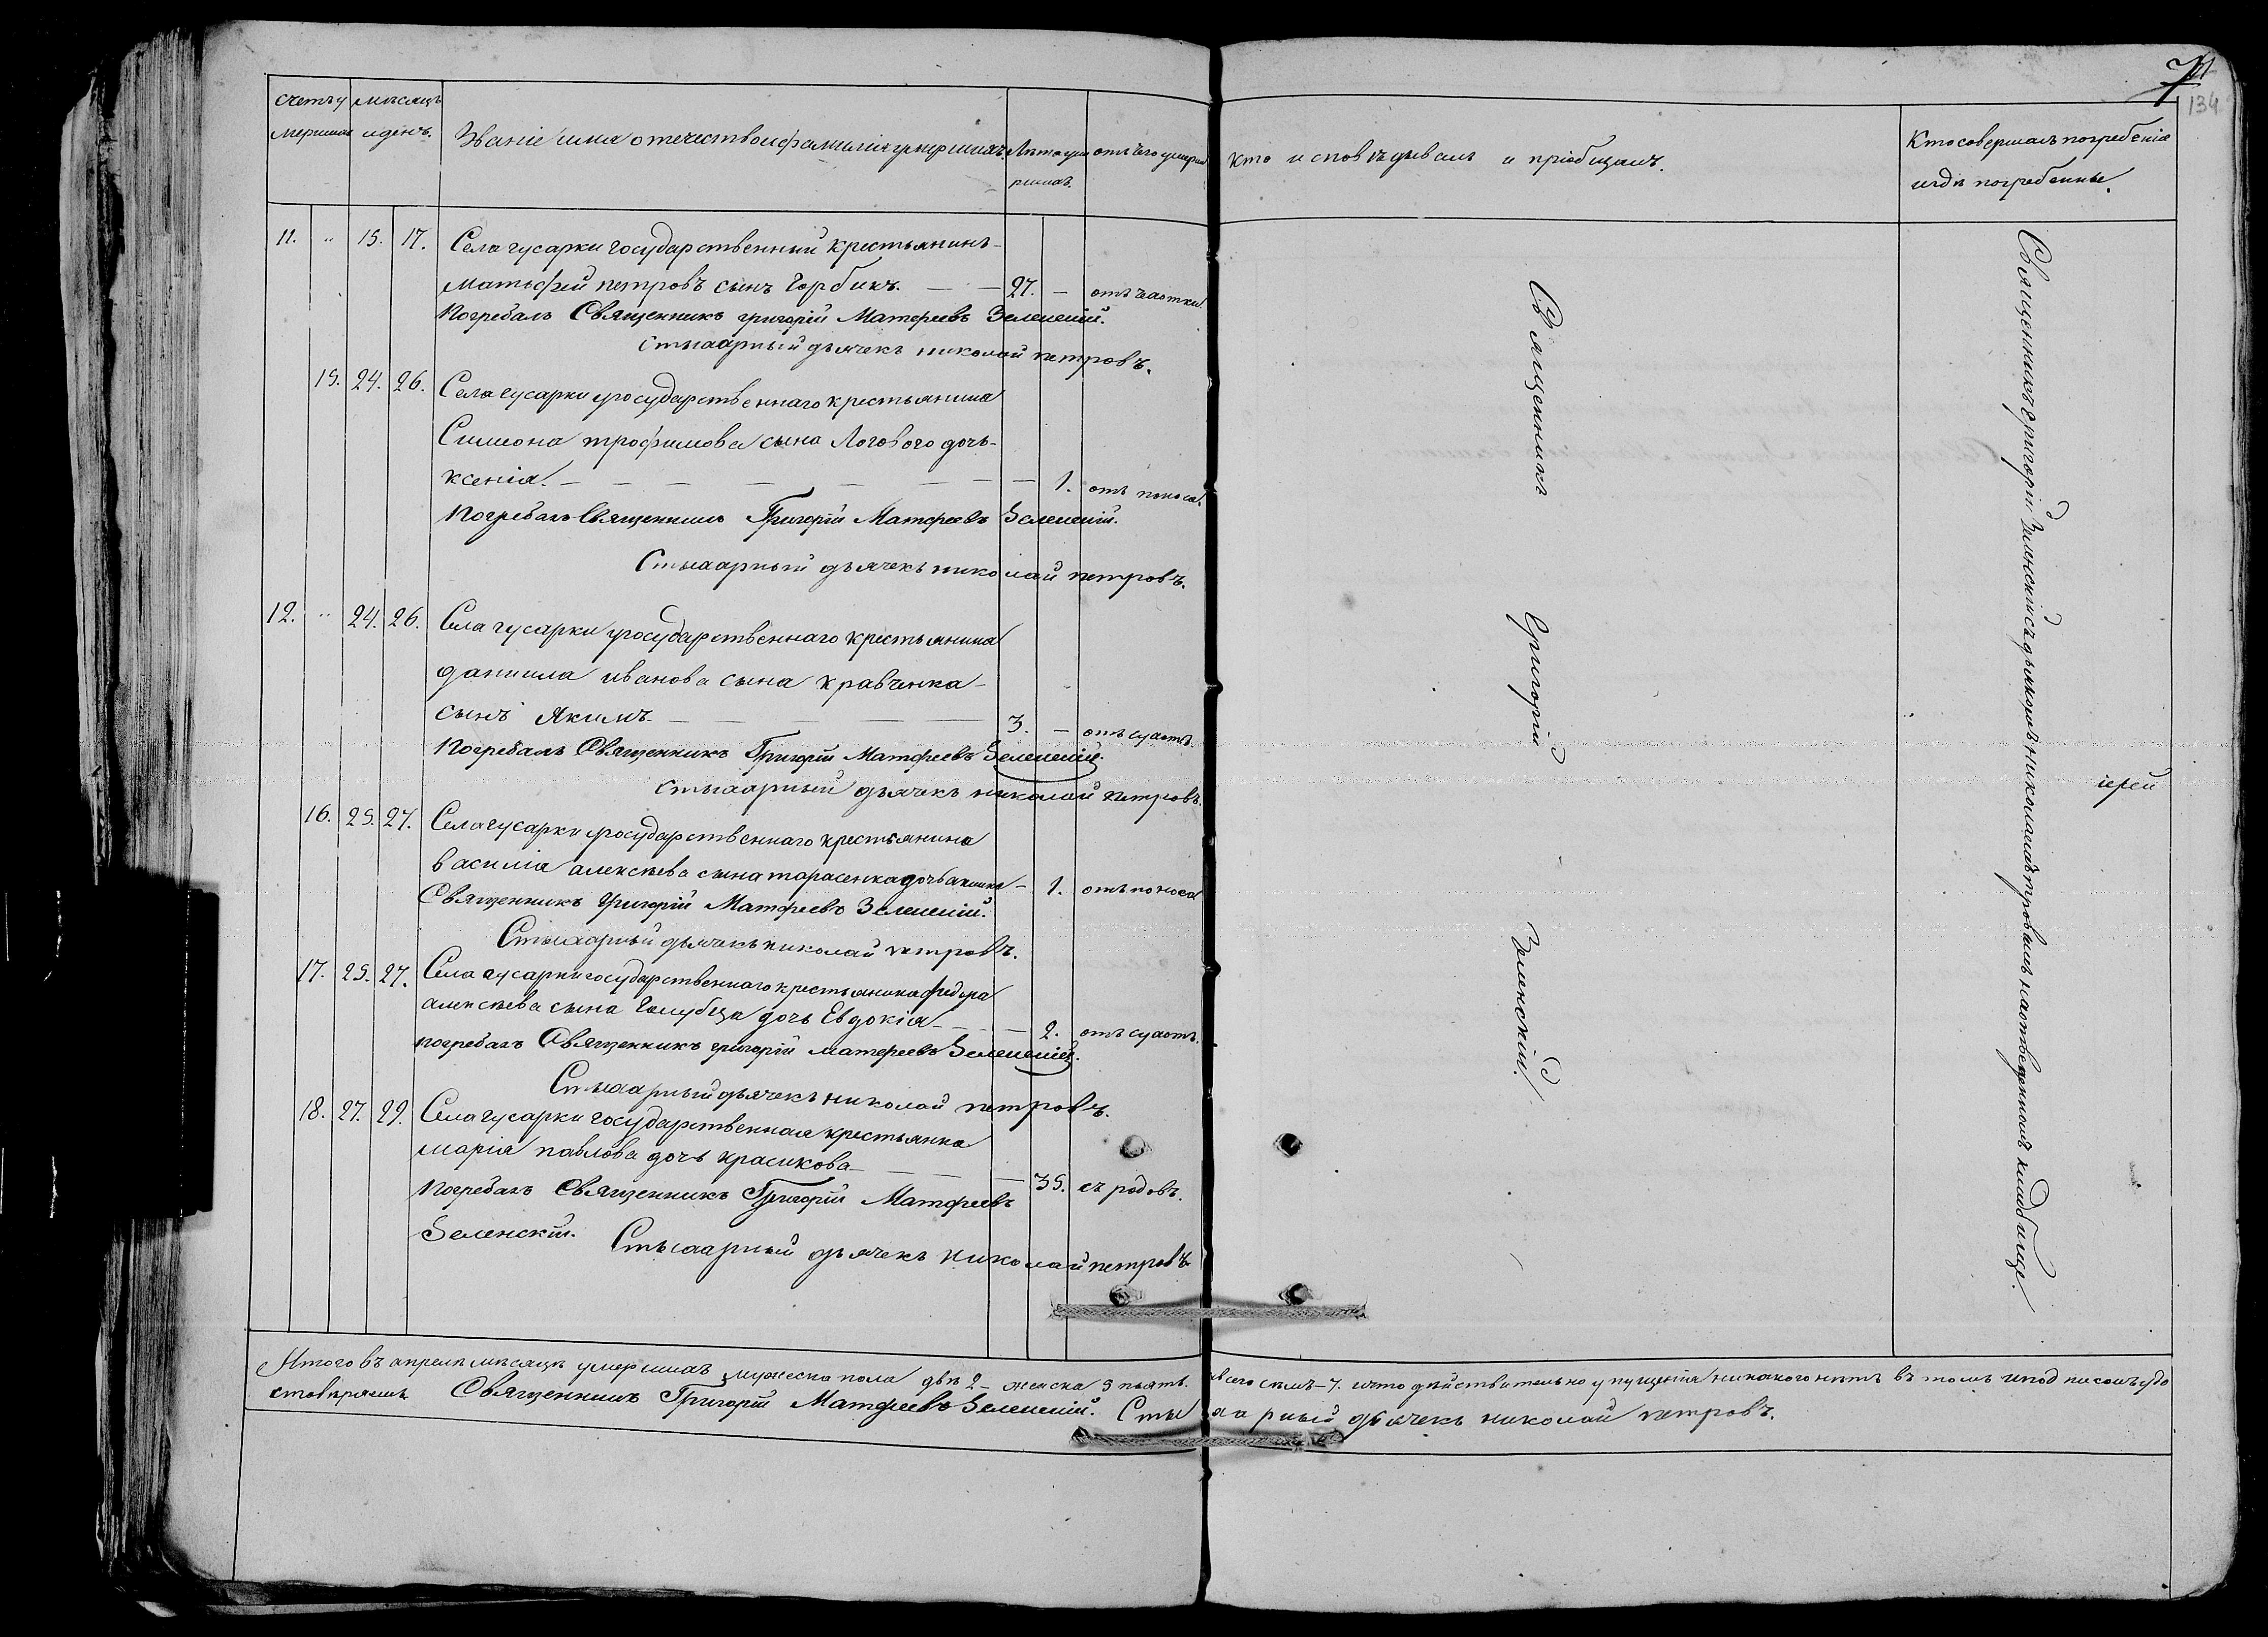 счетъ умершихъ
мѣсяцъ и день.
Званіе имя отечество и фамилія умершихъ
Лѣта умершихъ.
отъ чего умерли
кто исповѣдывалъ и пріобщалъ.
Кто совершалъ погребеніе и гдѣ погребенны.
134
11. " 15. 17. Села гусарки государственный крестьянинъ
матьфей петровъ сынъ Горбикъ. — — 27. — отъ чаотки
Погребалъ Священникъ григорій Матфеевъ Зеленскій.
Стихарный дьячекъ николай петровъ.
15. 24. 26. Села гусарки государственнаго крестьянина
Симеона трофимова сына Логового дочь
ксенія. — 1. отъ поноса.
Погребалъ Священникъ Григорій Матфеевъ Зеленскій.
Стихарный дьячекъ николай петровъ.
12. " 24. 26. Села гусарки государственнаго крестьянина
даниила иванова сына кравченка
сынъ Якимъ — 3. — отъ
Погребалъ Священникъ Григорій Матфеевъ Зеленскій.
стихарный дьячекъ николай петровъ.
16. 25. 27. Села гусарки государственнаго крестьянина
василія алексѣева сына тарасенка дочь — 1. отъ поноса
Священникъ Григорій Матфеевъ Зеленскій.
Стихарный дьячекъ николай петровъ.
17. 25. 27. Села гусарки государственнаго крестьянина федора
алексѣева сына Голубца дочь Евдокія — 2. отъ
погребалъ Священникъ григорій матфеевъ Зеленскій.
Стихарный дьячекъ николай петровъ.
18. 27. 29. Села гусарки государственная крестьянка
марія павлова дочь красикова — 35. съ родовъ.
Погребалъ Священникъ Григорій Матфеевъ
Зеленскій. Стихарный дьячекъ николай петровъ
Священникъ Григорій Зеленскій.
Священникъ григорій Зеленскій съ дьякомъ николаемъ петровымъ на отведенномъ кладбище.
іерей
Итого въ апрелѣ мѣсяцѣ умершихъ мужеска пола двѣ 2 — женска 5 пьять. всего семъ — 7. и что дѣйствительно упущенія никакого нѣтъ въ томъ и подписомъ удо
стовѣряемъ Священникъ Григорій Матфеевъ Зеленскій. Стихарный дьячекъ николай петровъ.